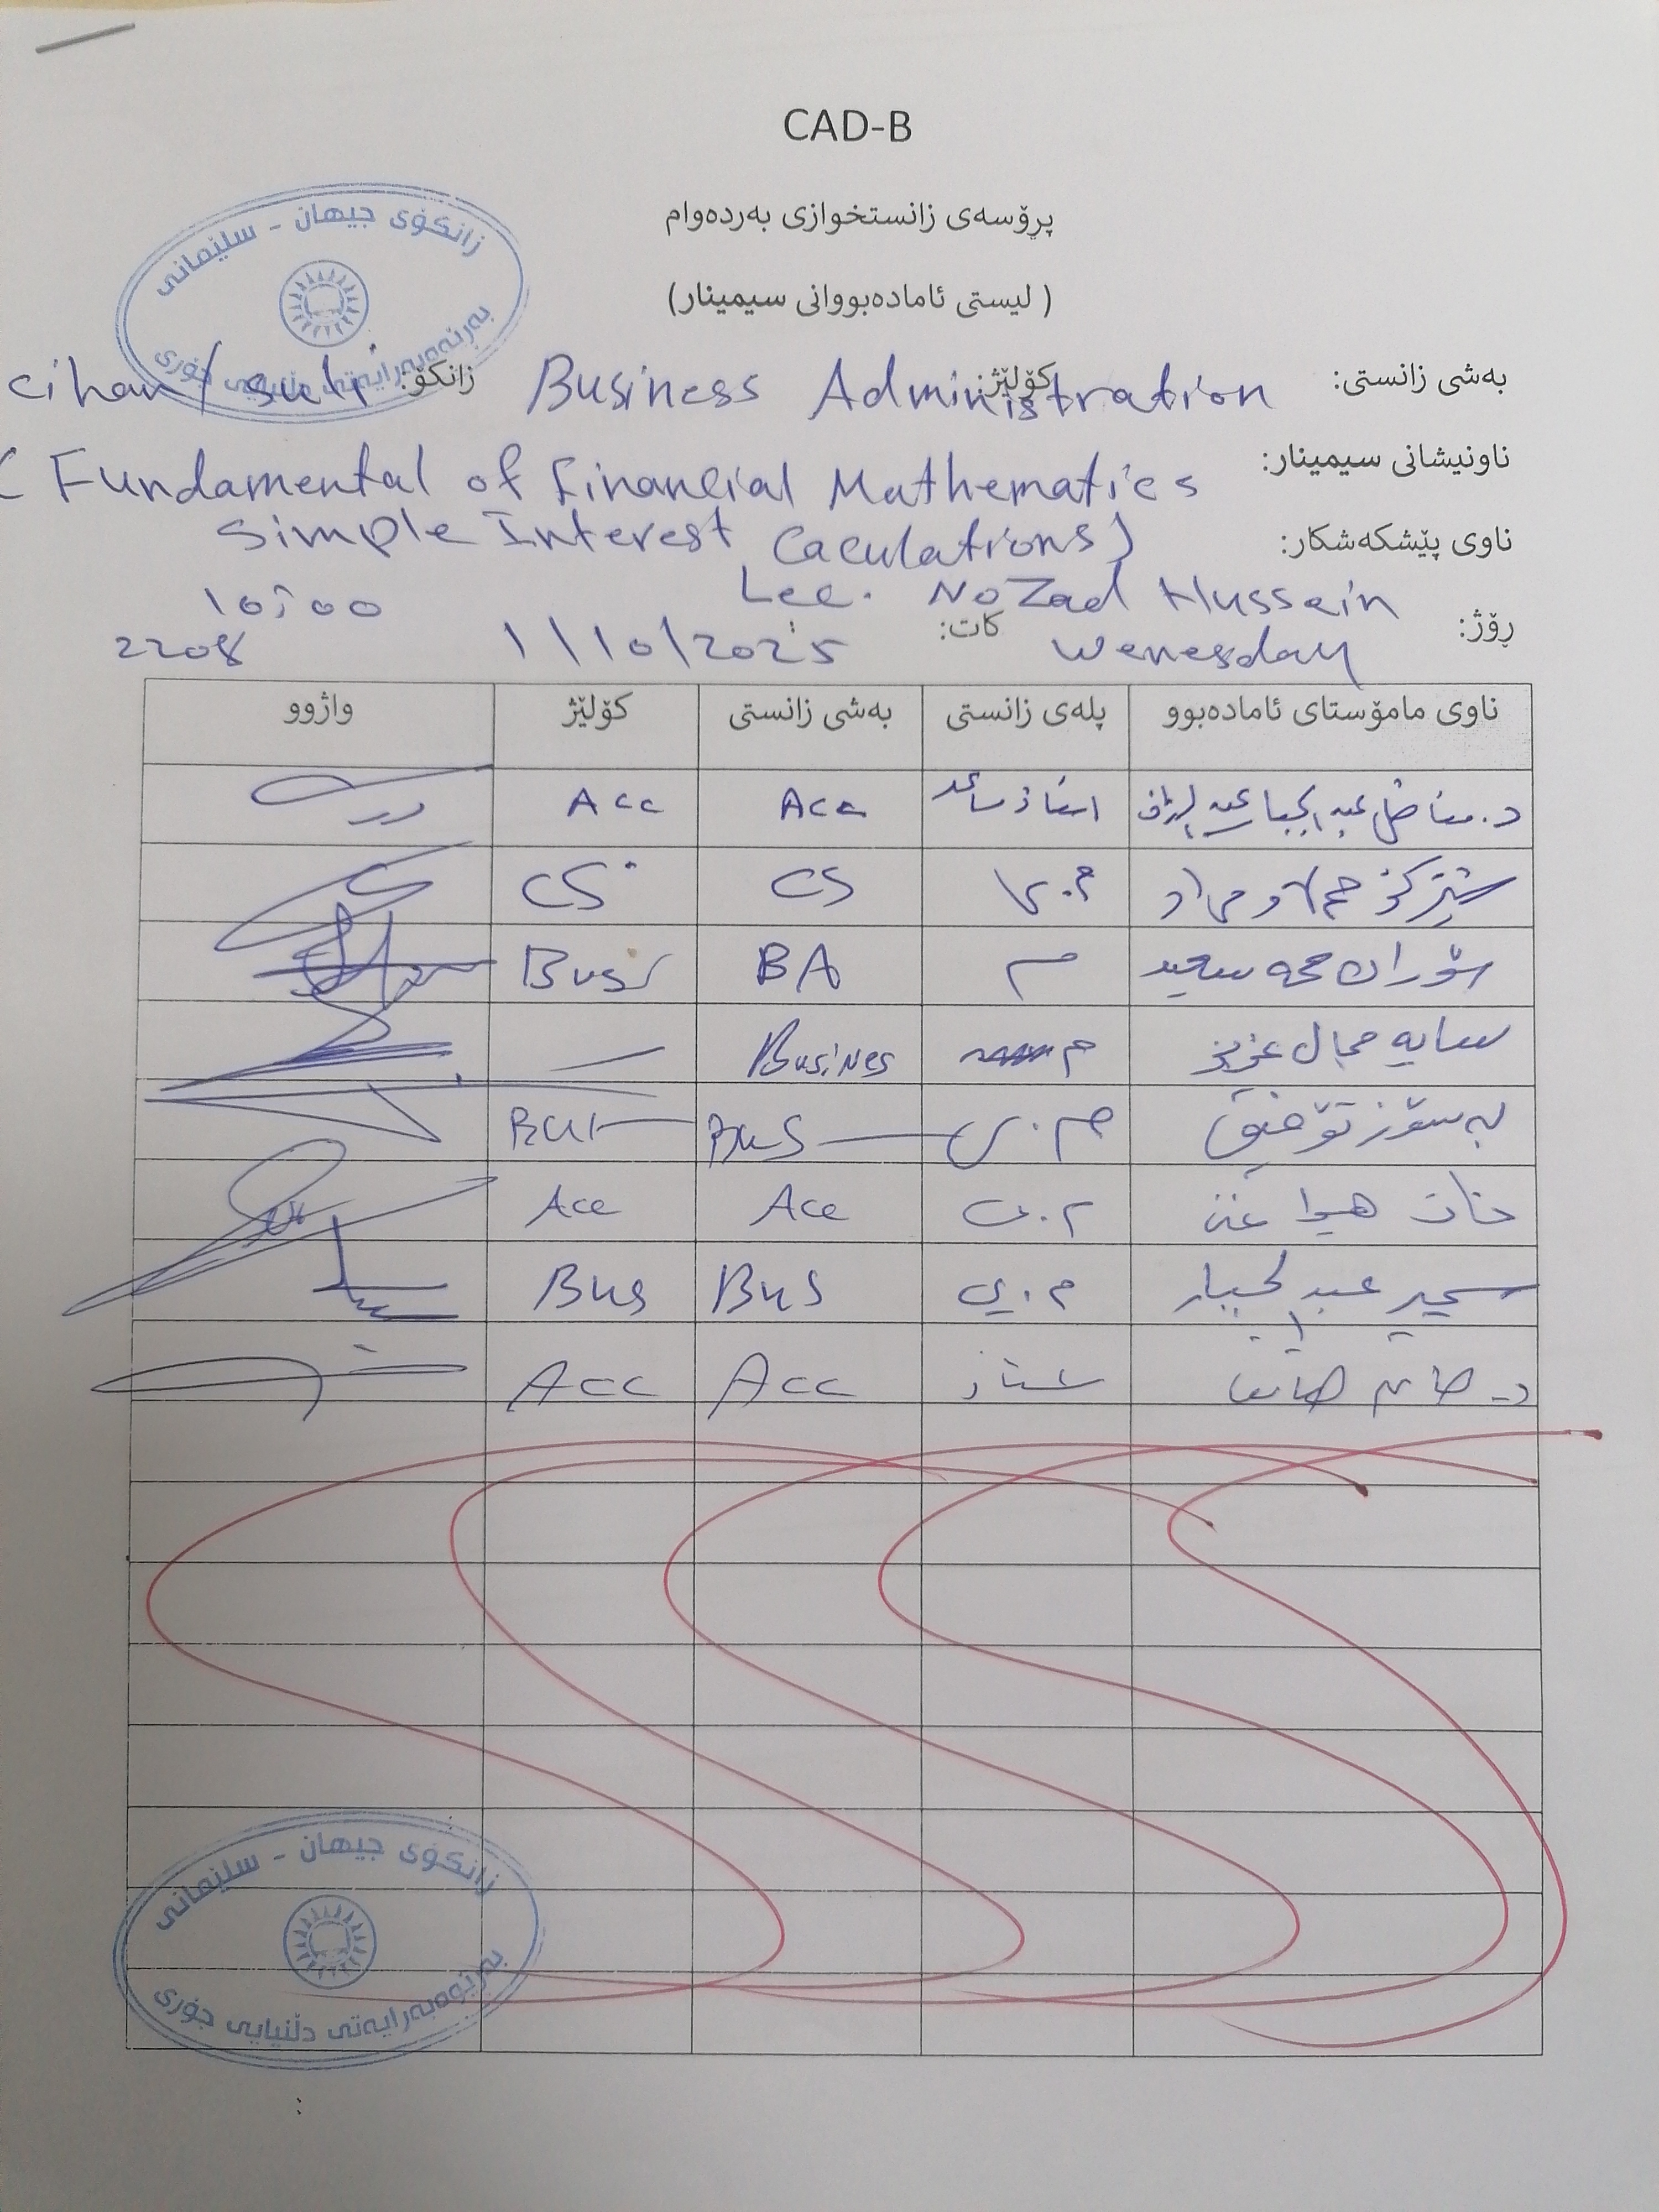 CAD-B
پرۆسەی زانستخوازی بەردەوام
( لیستی ئامادەبووانی سیمینار)
زانکۆی جیهان - سلێمانی
بەڕێوەبەرایەتی دڵنیایی جۆری
بەشی زانستی: Business Administration کۆلێژ: زانکۆ: cihan / suli
ناونیشانی سیمینار: ( Fundamental of Financial Mathematics
Simple Interest Caculations)
ناوی پێشکەشکار: Lec. NoZad Hussein
ڕۆژ: Wenesday کات: 1/10/2025 10:00
2208
ناوی مامۆستای ئامادەبوو پلەی زانستی بەشی زانستی کۆلێژ واژوو
د. مناضل عبد الجبار عبد استاذ مساعد Acc Acc
شێرکۆ م.ی CS CS
سۆران حمە سعید م BA Bus
سایە جمال عزیز م Busines —
بەسۆز تۆفیق م.ی Bus
هیوا م.ی Acc Acc
سمير عبد الجبار م.ي Bus Bus
د. Acc Acc
زانکۆی جیهان - سلێمانی
بەڕێوەبەرایەتی دڵنیایی جۆری